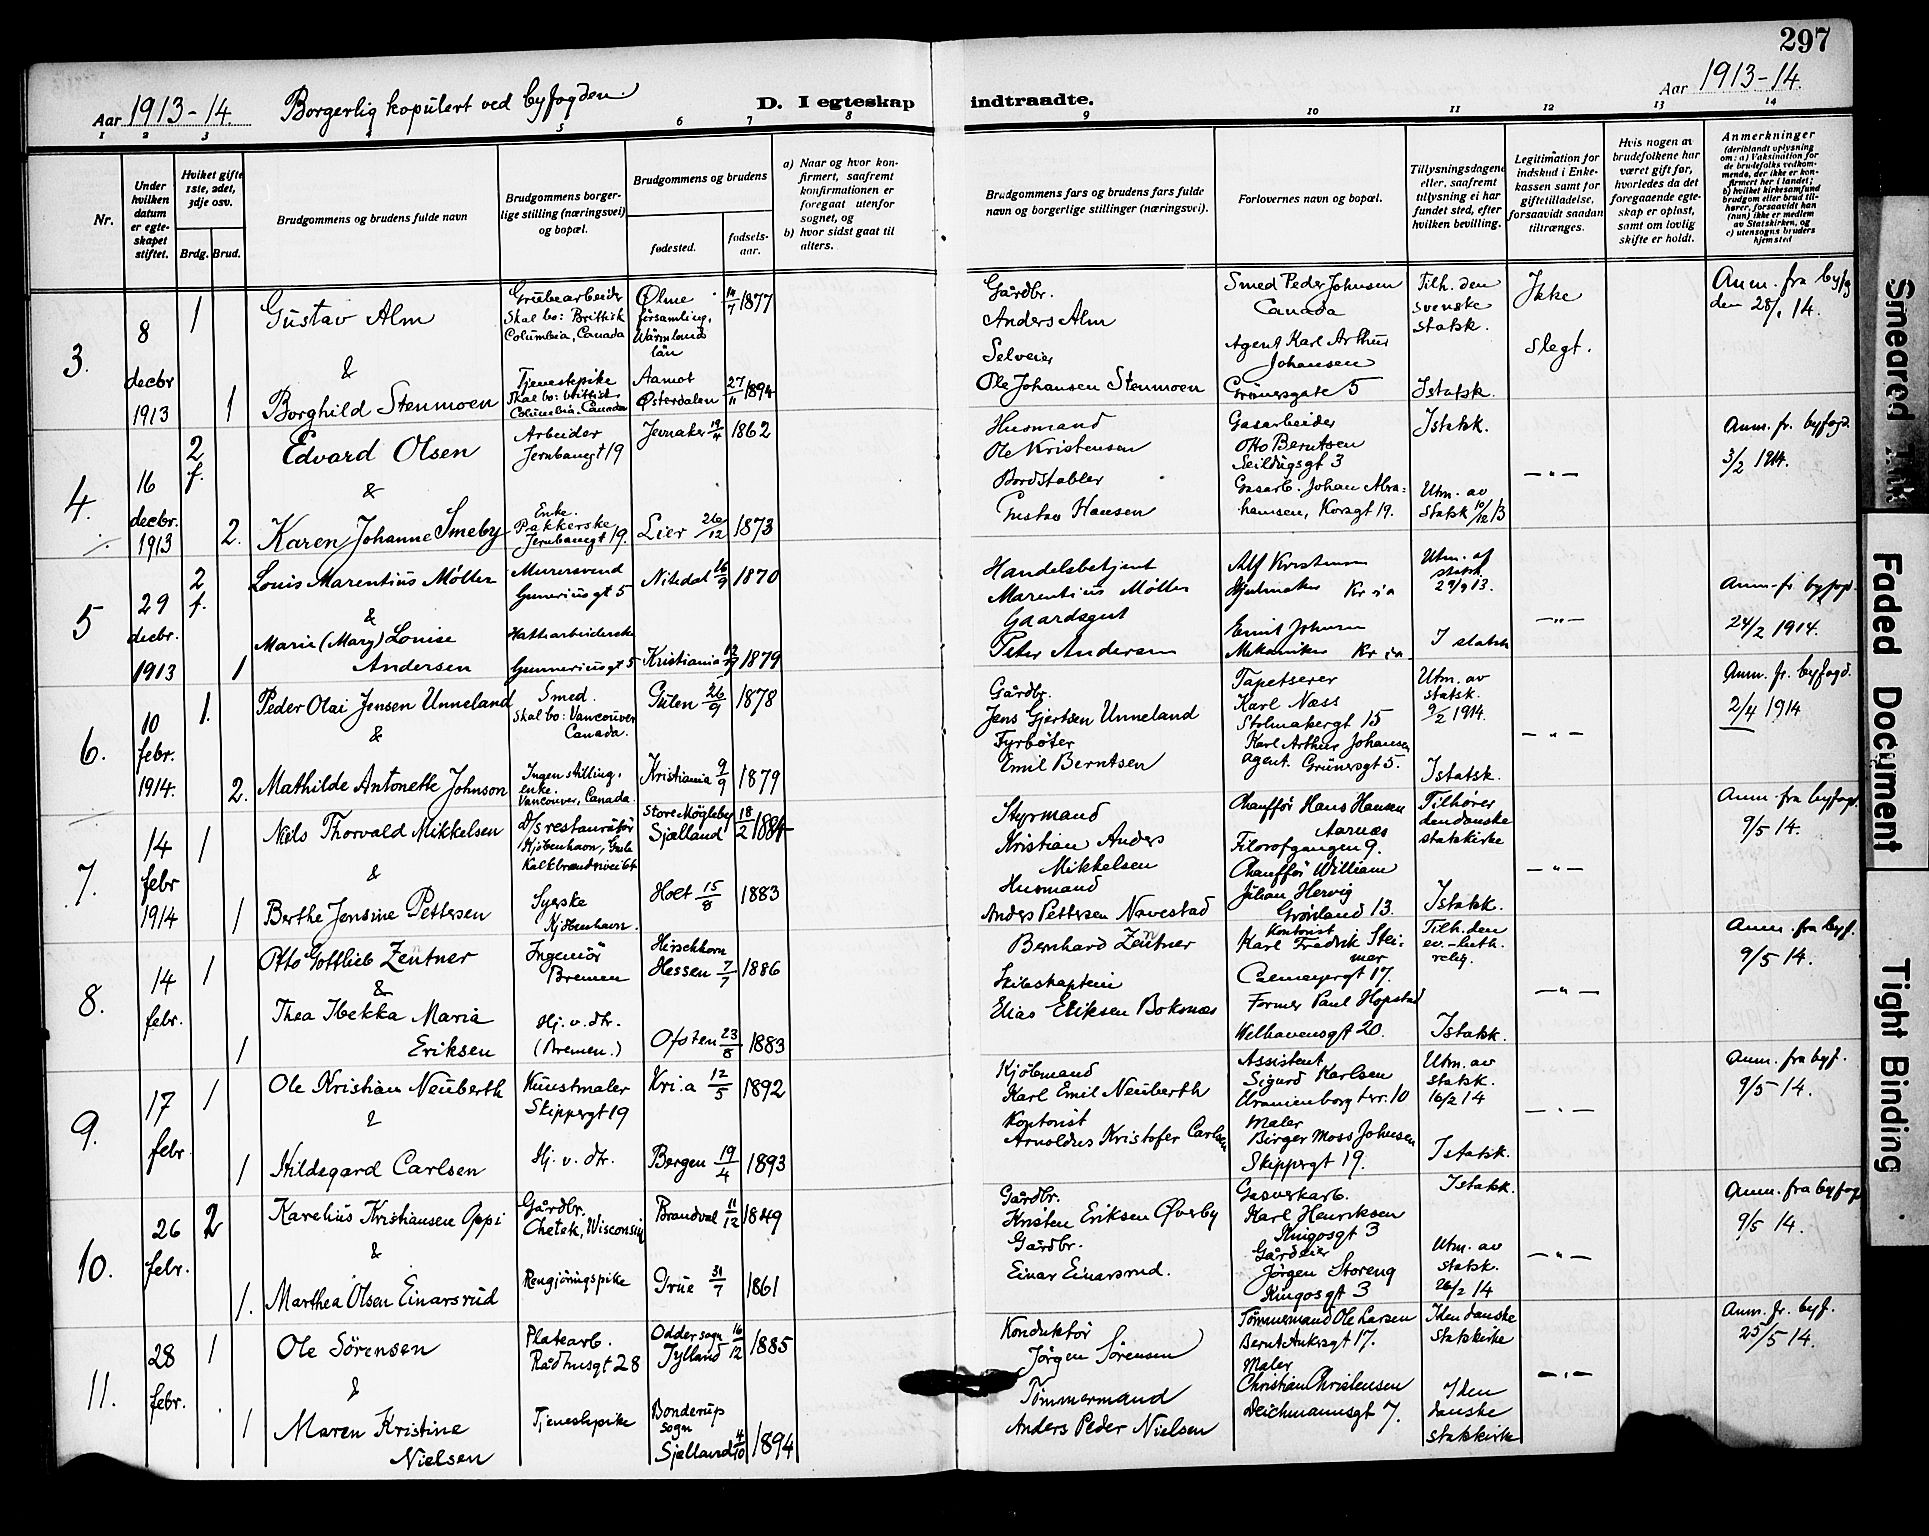 297
Aar 1913-14. Borgerlig kopulert ved byfogden. D. I egteskap indtraadte. Aar 1913-14.
1 2 3 5 6 7 8 9 10 11 12 13 14
Nr.
Under hvilken datum er egteskapet stiftet.
Hviket gifte 1ste, 2det, 3dje osv.
Brdg. Brud.
Brudgommens og brudens fulde navn
Brudgommens borgerlige stilling (næringsvei) og bopæl.
Brudgommens og brudens
fødested. fødselsaar.
a) Naar og hvor konfirmert, saafremt konfirmationen er foregaat utenfor sognet, og
b) hvor sidst gaat til alters.
Brudgommens fars og brudens fars fulde navn og borgerlige stillinger (næringsvei).
Forlovernes navn og bopæl.
Tillysningsdagene eller, saafremt tillysning ei har fundet sted, efter hvilken bevilling.
Legitimation for indskud i Enkekassen samt for giftetilladelse, forsaavidt saadan tiltrænges.
Hvis nogen av brudefolkene har været gift før, hvorledes da det foregaaende egteskap er opløst, samt om lovlig skifte er holdt.
Anmerkninger
(deriblandt oplysning om: a) Vaksination for de brudefolks vedkommende, der ikke er konfirmert her i landet; b) hvilket kirkesamfund brudgom eller brud tilhører, forsaavidt han (hun) ikke er medlem av Statskirken, og c) utensogns bruders hjemsted
3. 8 decbr 1913
1 Gustav Alm
Grubearbeider Skal bo: Brittisk Columbia, Canada
Ølme församling, Wärmlands län 14/7 1877
Gårdbr. Anders Alm
Smed Peder Johnsen Canada
Tilh. den svenske statsk.
Ikke slegt.
Anm. fra byfg den 28/1 14.
&
1 Borghild Stenmoen
Tjenestepike Skal bo: Brittisk Columbia, Canada
Aamot Østerdalen 27/11 1894
Selveier Ole Johansen Stenmoen
Agent Karl Arthur Johansen Grünersgate 5
I statsk.
4. 16 decbr. 1913
2 f. Edvard Olsen
Arbeider Jernbanegt 19
Jevnaker 19/4 1862
Husmand Ole Kristensen
Gasarbeider Otto Berntsen Seildugsgt 3
I statsk.
— " —
Anm. fr. byfogd. 3/2 1914.
&
2. Karen Johanne Smeby
Enke. Pakkerske Jernbanegt 19.
Lier 26/12 1873
Bordstabler Gustav Hansen
Gasarb. Johan Abrahamsen, Korsgt 19.
Utm. av statsk 10/12 13
5 29 decbr. 1913
2 f. Louis Marentius Møller
Murersvend Gunerius gt 5
Nitedal 16/9 1870
Handelsbetjent Marentius Møller
Alf Kristensen Hjulmaker Kr ia
Utm. af statsk 29/9 13.
— " —
Anm. fr byfogd. 24/2 1914.
&
1 Marie (Mary) Louise Andersen
Hattearbeiderske Gunneriusgt 5
Kristiania 1879
Gaardsgut Peter Andersen
Emil Johnsen Mekaniker Kr ia
I statsk
6. 10 febr. 1914.
1. Peder Olai Jensen Unneland
Smed. Skal bo: Vancouver Canada.
Gulen 26/9 1878
Gårdbr. Jens Gjertsen Unneland
Tapetserer Karl Næss Stolmakergt 15
Utm. av statsk. 9/2 1914.
— " —
Anm. fr. byfogd. 2/4 1914
&
2. Mathilde Antonette Johnson
Ingen stilling, enke. Vancouver, Canada.
Kristiania 9/9 1879
Fyrbøter Emil Berntsen
Karl Arthur Johansen agent. Grünersgt 5.
I statsk.
7. 14 febr 1914
1 Niels Thorvald Mikkelsen
D/s restauratør Kjøbenhavn, Gamle Kalkbrænderivei 61
Store Mögleby Sjælland 18/2 1884
Styrmand Kristian Anders Mikkelsen
Chauffør Hans Hansen Aarnæs Filosofgangen 9.
Tilhører den danske statskirke
— " —
Anm. fra byfogd. 9/5 14.
&
1 Berthe Jensine Pettersen
Syerske Kjøbenhavn.
Holt 15/8 1883
Husmand Anders Pettersen Navestad
Chauffør William Julian Hervig Grønland 13.
I statsk.
8. 14 febr.
1 Otto Gottlieb Zentner
Ingeniør Bremen
Hirschhorn Hessen 7/7 1886
Bernhard Zentner
Kontorist Karl Fredrik Steimar Colmeyergt 17.
Tilh. den ev.-luth. relig.
— " —
Anm. fra byf. 9/5 14.
&
1 Thea Rebekka Maria Eriksen
Hj. v. dtr. (Bremen.)
Ofoten 23/8 1883
Skibskaptein Elias Eriksen Boksnæs
Former Paul Hopstad Welhavensgt 20.
I statsk.
9. 17 febr
1 Ole Kristian Neuberth
Kunstmaler Skippergt 19
Kri.a 12/5 1892
Kjøbmand Karl Emil Neuberth
Assistent Sigurd Karlsen Uranienborg terr. 10
Utm. av statsk. 16/2 14
— " —
Anm. fra byf. 9/5 14.
&
1 Hildegard Carlsen
Hj. v. dtr.
Bergen 19/4 1893
Kontorist Arnoldus Kristofer Carlsen
Maler Birger Moss Johnsen Skippergt 19.
I statsk.
10. 26 febr.
2 Karelius Kristiansen Oppi
Gårdbr. Chetek, Wisconsin
Brandval 11/12 1849
Gårdbr. Kristen Eriksen Øverby
Gasverkarb. Karl Henriksen Kingosgt 3
I statsk.
— " —
Anm. fra byfogd 9/5 14.
&
1. Marthea Olsen Einarsrud
Rengjøringspike
Grue 31/7 1861
Gårdbr. Einar Einarsrud.
Gårdeier Jörgen Storeng Kingosgt 3
Utm. av statsk. 26/2 14
11. 28 febr.
1 Ole Sörensen
Platearb. Rådhusgt 28
Odder sogn Jylland 16/12 1885
Konduktör Jörgen Sörensen
Tømmermand Ole Larsen Bernt Ankersgt 17.
I den danske statskirke
— " —
Anm. fr. byf. 25/5 14.
&
1 Maren Kristine Nielsen
Tjenestepike
Bonderup sogn Sjælland 4/10 1894
Tömmermand Anders Peder Nielsen
Maler Christian Christensen Deichmannsgt 7.
I den danske statskirke
Smeared Ink
Faded Document
Tight Binding